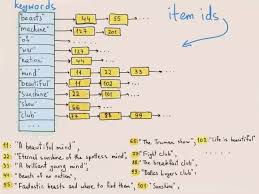 keywords
item ids
"beasts" 44 55 ...
"machine" 127 201 ...
"of" ...
"war" 127 ...
"nation" 44 ...
"mind" 11 22 33 ...
"beautiful" 11 102 ...
"sunshine" 22 101 ...
"show" 66 ...
"club" 77 88 99 ...
11 : "A beautiful mind",
22 : "Eternal sunshine of the spotless mind",
33 : "A brilliant young mind",
44 : "Beasts of no nation",
55 : "Fantastic beasts and where to find them",
66 : "The Truman show",
102 : "Life is beautiful"
77 : "Fight club",
88 : "The breakfast club",
99 : "Dallas buyers club",
101 : "Sunshine"